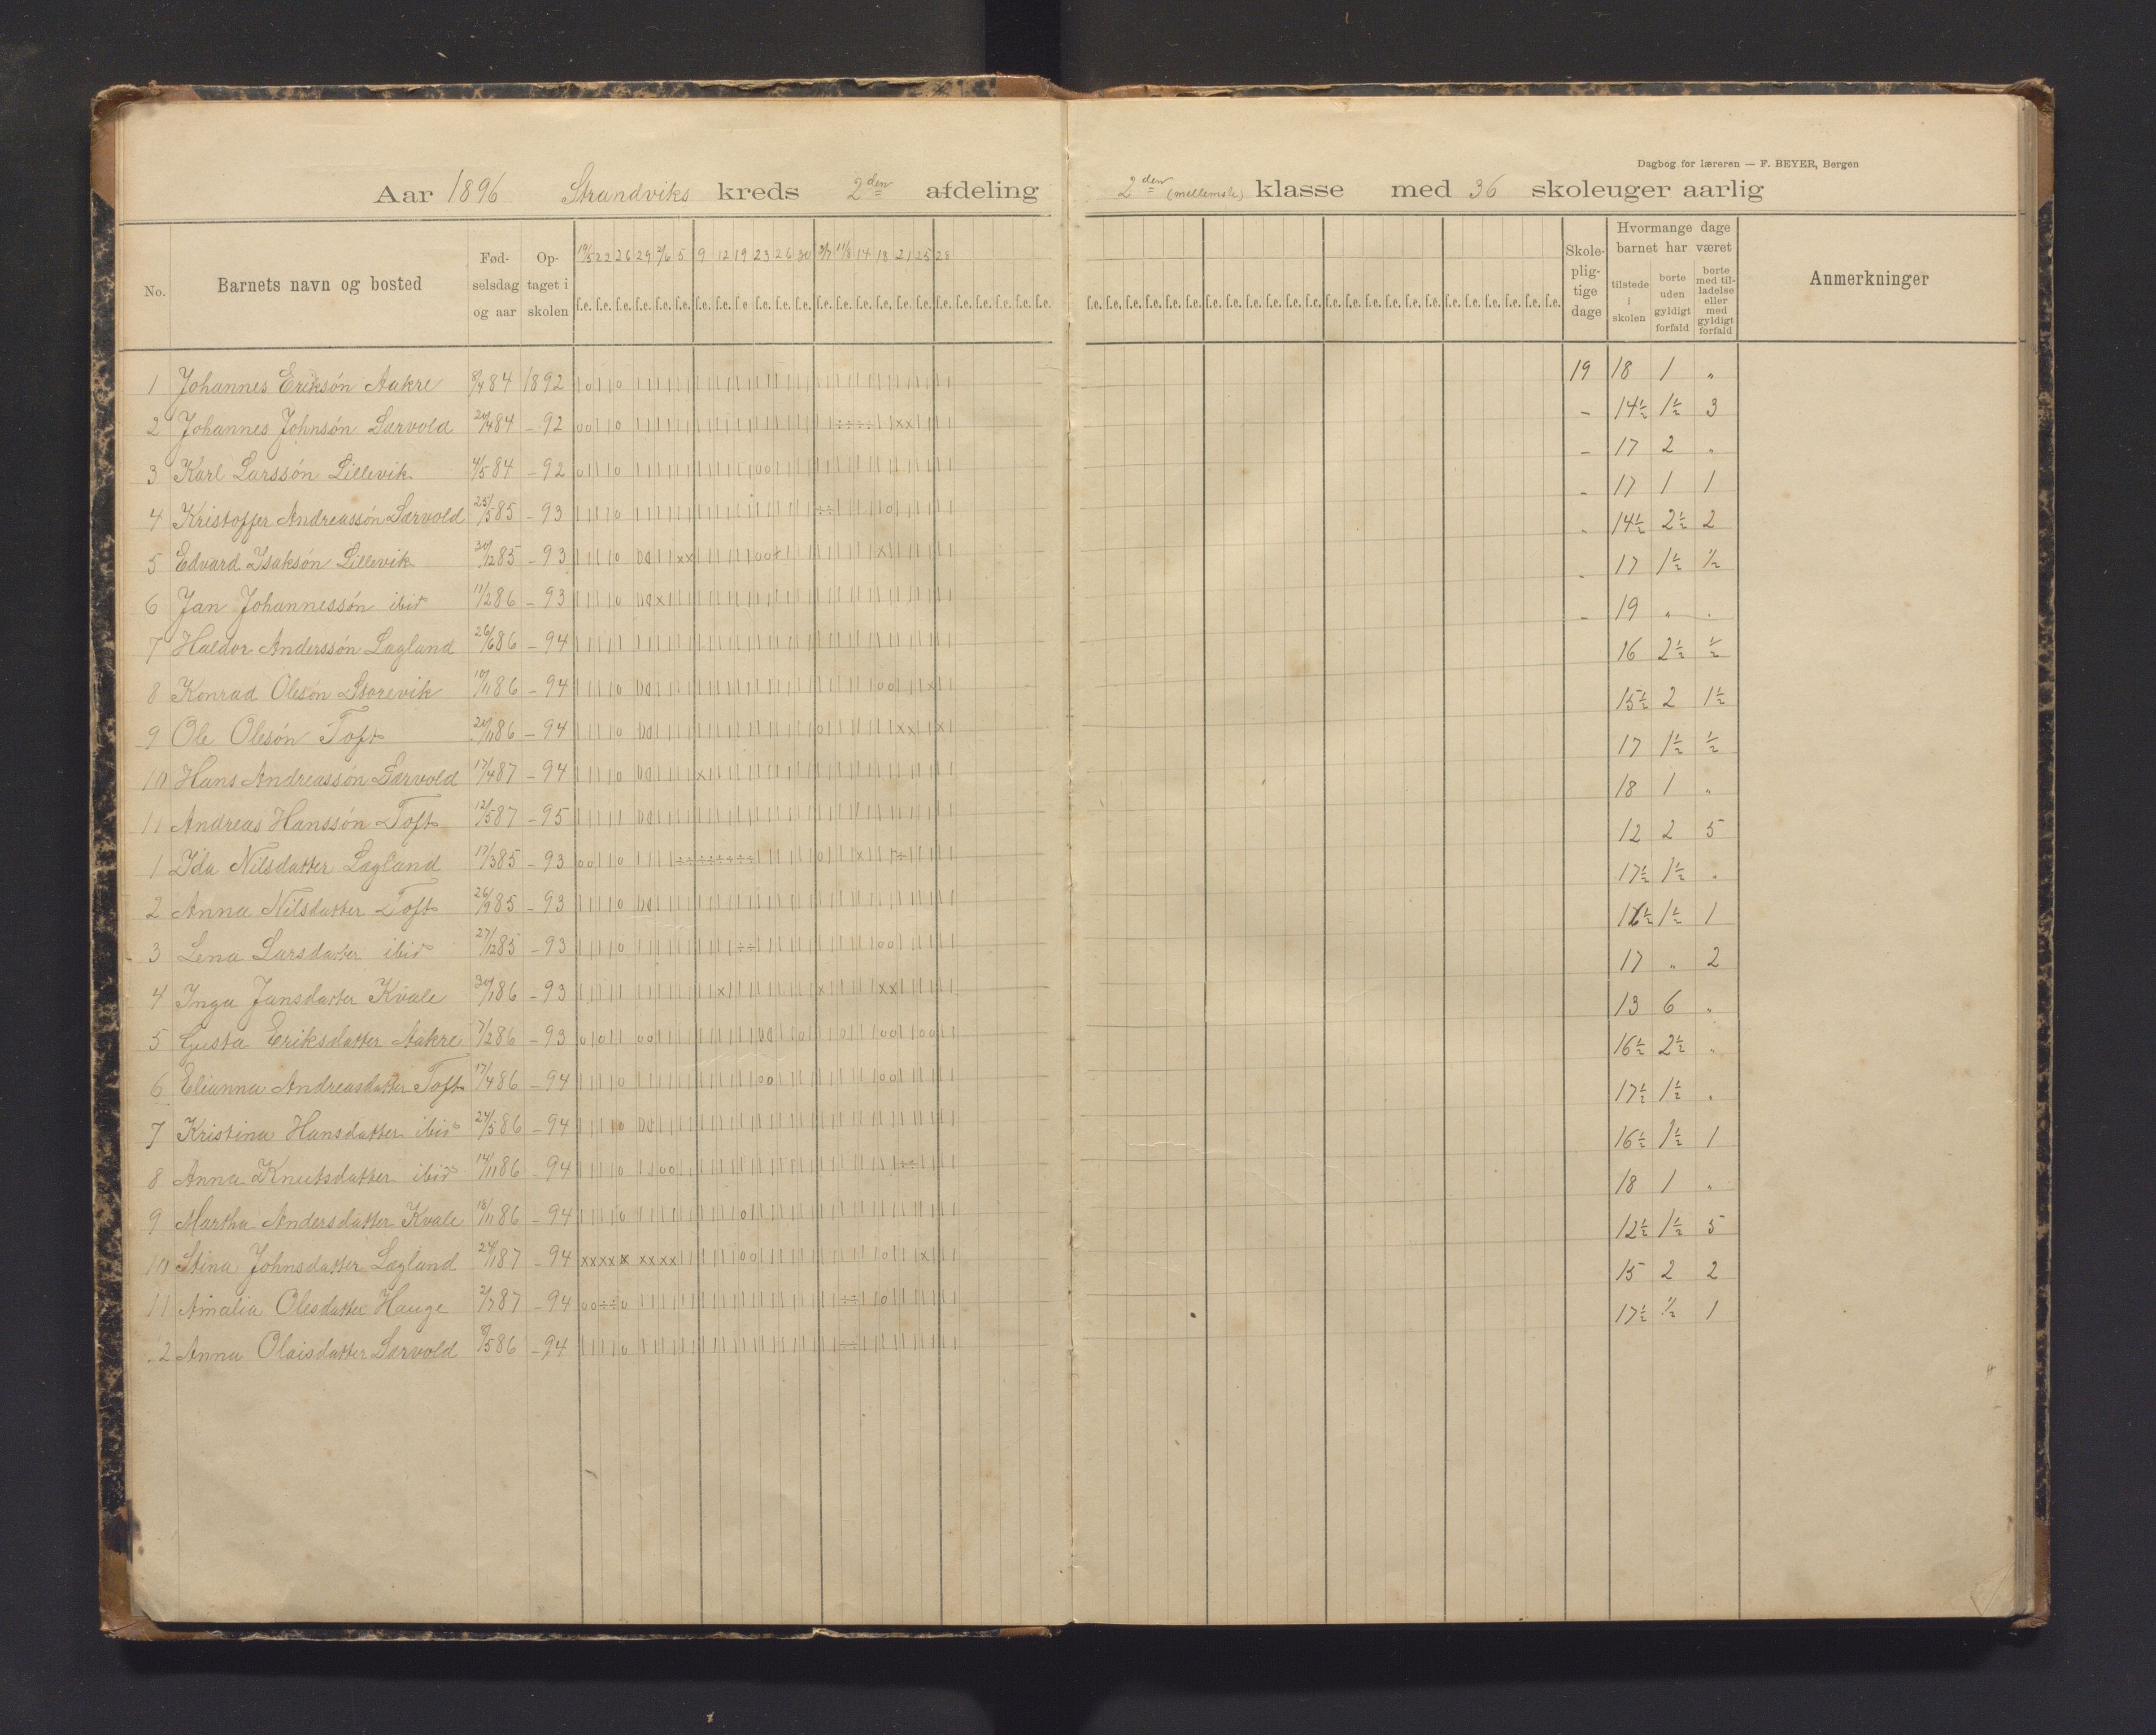 Dagbog for læreren — F. BEYER, Bergen
Aar 1896 Strandviks kreds 2den afdeling 2den (mellemste) klasse med 36 skoleuger aarlig
No. Barnets navn og bosted Fødselsdag og aar Optaget i skolen 19/5 22 26 29 2/6 5 9 12 19 23 26 30 3/7 11/8 14 18 21 25 28 Skolepligtige dage Hvormange dage barnet har været tilstede i skolen borte uden gyldigt forfald borte med tilladelse eller med gyldigt forfald Anmerkninger
f.e. f.e. f.e. f.e. f.e. f.e. f.e. f.e. f.e. f.e. f.e. f.e. f.e. f.e. f.e. f.e. f.e. f.e. f.e. f.e. f.e. f.e. f.e. f.e.
f.e. f.e. f.e. f.e. f.e. f.e. f.e. f.e. f.e. f.e. f.e. f.e. f.e. f.e. f.e. f.e. f.e. f.e. f.e. f.e. f.e. f.e. f.e. f.e.
1 Johannes Eriksön Aakre 84 1892 19 18 1 „
2 Johannes Johnsön Særvold 84 – 92 – 14½ 1½ 3
3 Karl Larssön Lillevik 4/5 84 – 92 – 17 2 „
4 Kristoffer Andreassön Særvold 25/5 85 – 93 – 17 1 1
5 Edvard Isaksön Lillevik 30/12 85 – 93 – 14½ 2½ 2
6 Jan Johannessön ibid 11/2 86 – 93 – 17 1½ ½
7 Haldor Anderssön Lægland 26/6 86 – 94 – 19 „ „
8 Konrad Olesön Storevik 10/11 86 – 94 16 2½ ½
9 Ole Olesön Toft 20/11 86 – 94 15½ 2 1½
10 Hans Andreassön Særvold 17/4 87 – 94 17 1½ ½
11 Andreas Hanssön Toft 12/5 87 – 95 18 1 „
1 Ida Nilsdatter Lægland 17/3 85 – 93 12 2 5
2 Anna Nilsdatter Toft 26/9 85 – 93 17½ 1½ „
3 Lena Larsdatter ibid 27/12 85 – 93 16½ 1½ 1
4 Inga Jansdatter Kvale 30/1 86 – 93 17 „ 2
5 Gusta Eriksdatter Aakre 7/2 86 – 93 13 6 „
6 Elianna Andreasdatter Toft 17/4 86 – 94 16½ 2½ „
7 Kristina Hansdatter ibid 24/5 86 – 94 17½ 1½ „
8 Anna Knutsdatter ibid 14/11 86 – 94 16½ 1½ 1
9 Martha Andersdatter Kvale 18/11 86 – 94 18 1 „
10 Stina Johnsdatter Lægland 24/1 87 – 94 12½ 1½ 5
11 Amalia Olesdatter Hauge 2/7 87 – 94 15 2 2
12 Anna Olaisdatter Særvold 8/5 86 – 94 17½ ½ 1